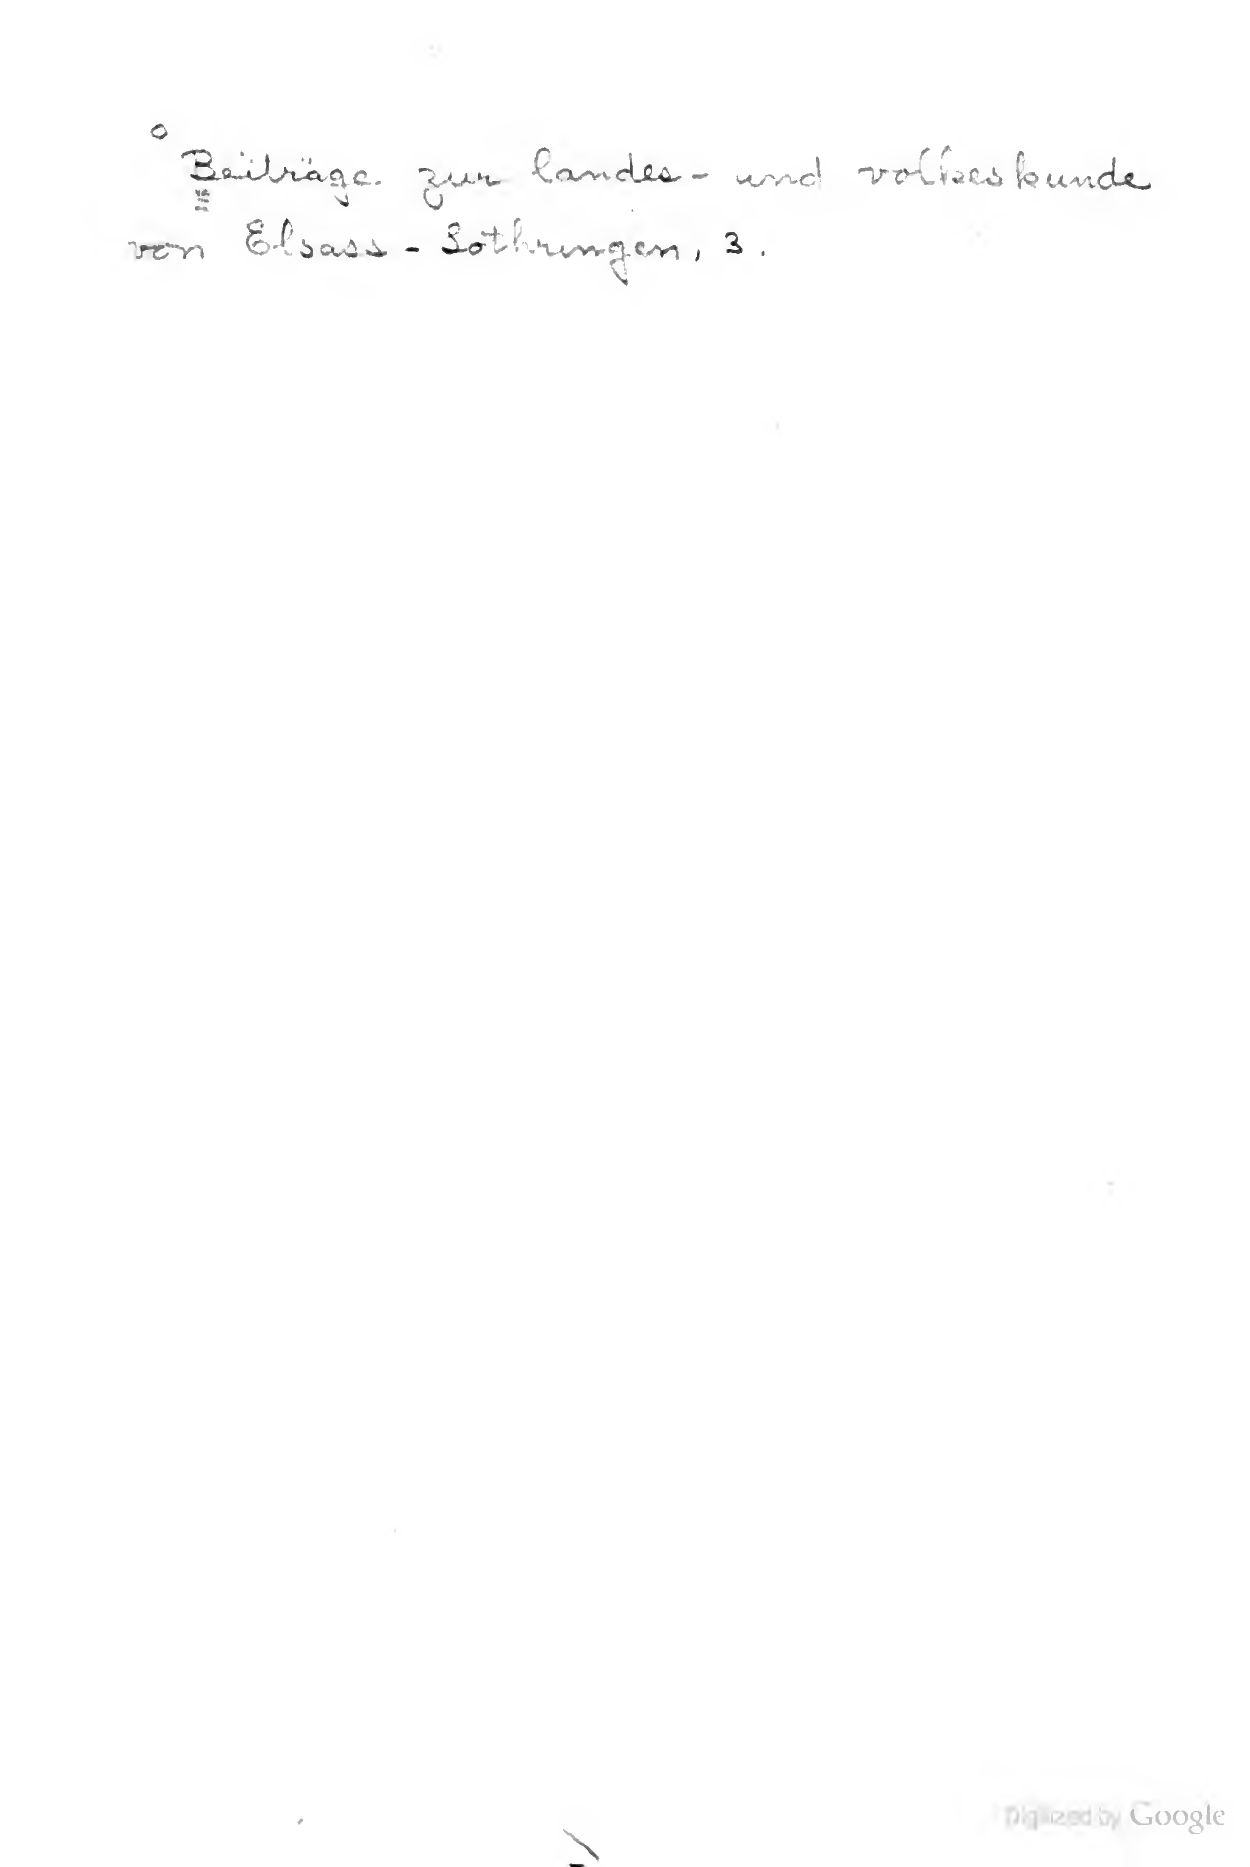 Beiträge zur landes- und volkeskunde
von Elsass-Lothringen, 3.
Digitized by Google